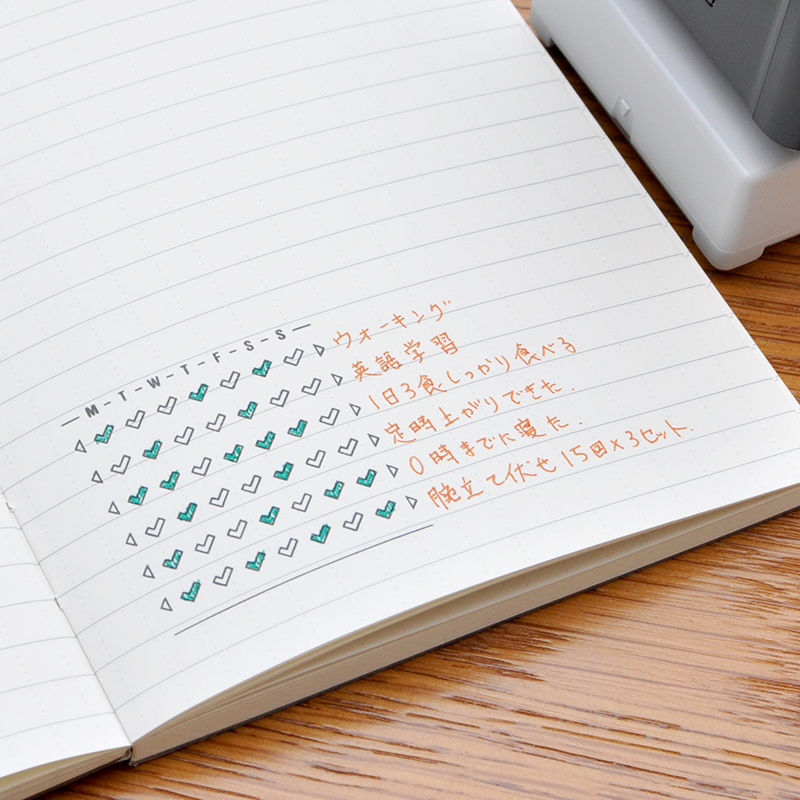 M-T-W-T-F-S-S
ウォーキング
英語学習
1日3食しっかり食べる
定時上がりできた.
0時までに寝た.
腕立て伏せ 15回×3セット.